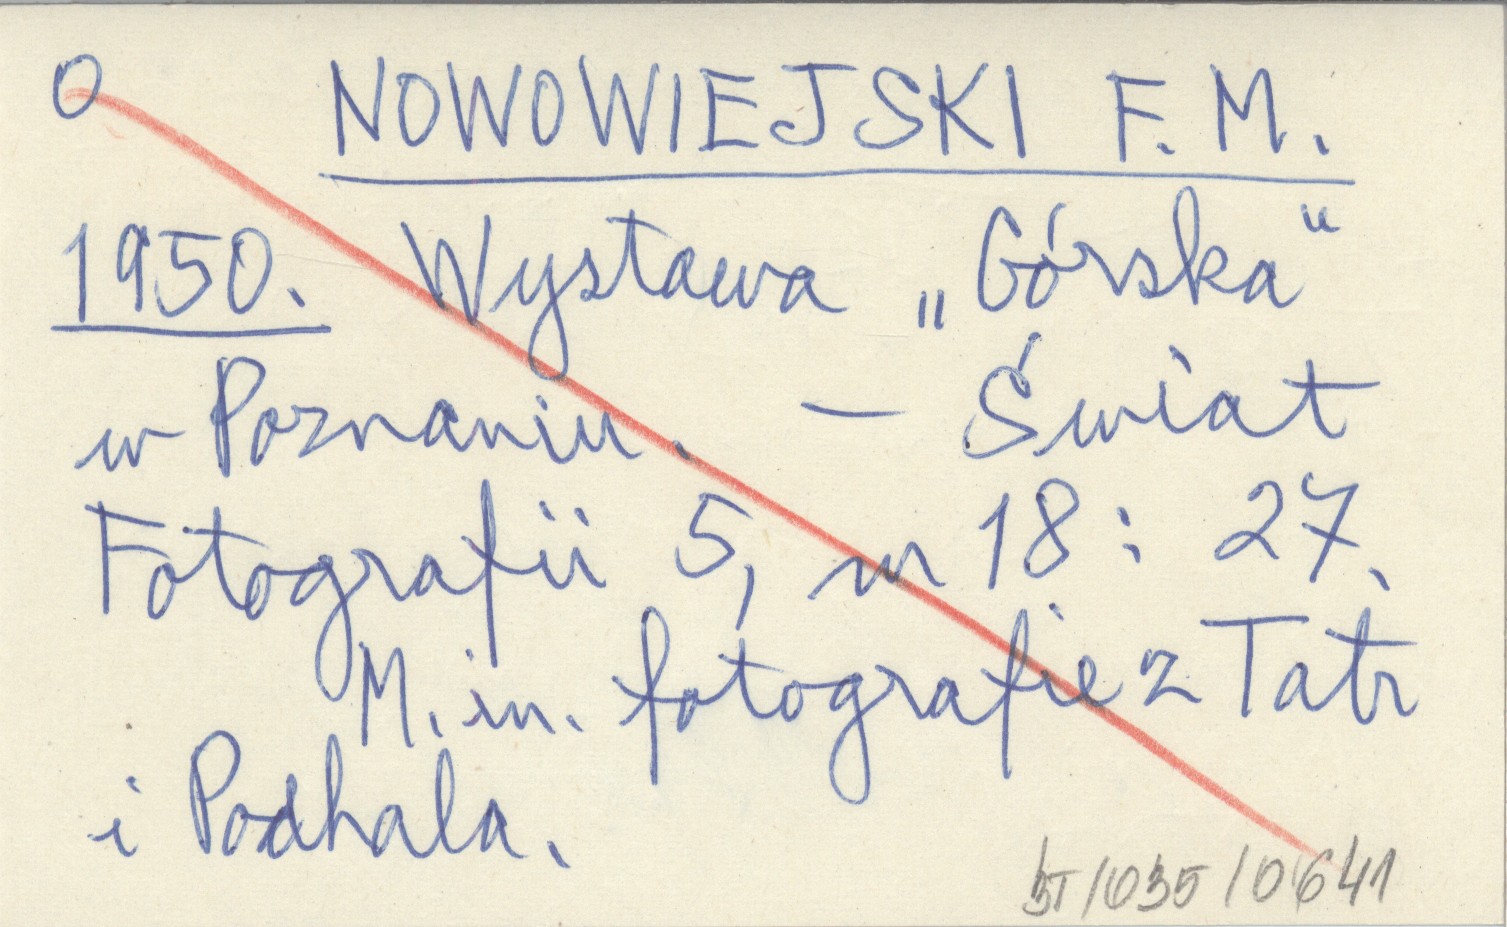 O NOWOWIEJSKI F. M.
1950. Wystawa „Górska"
w Poznaniu. — Świat
Fotografii 5, nr 18: 27.
M. in. fotografie z Tatr
i Podhala.
/035/0641